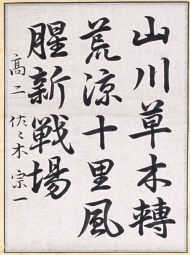 山川草木轉
荒涼十里風
腥新戦場
高二 佐々木宗一